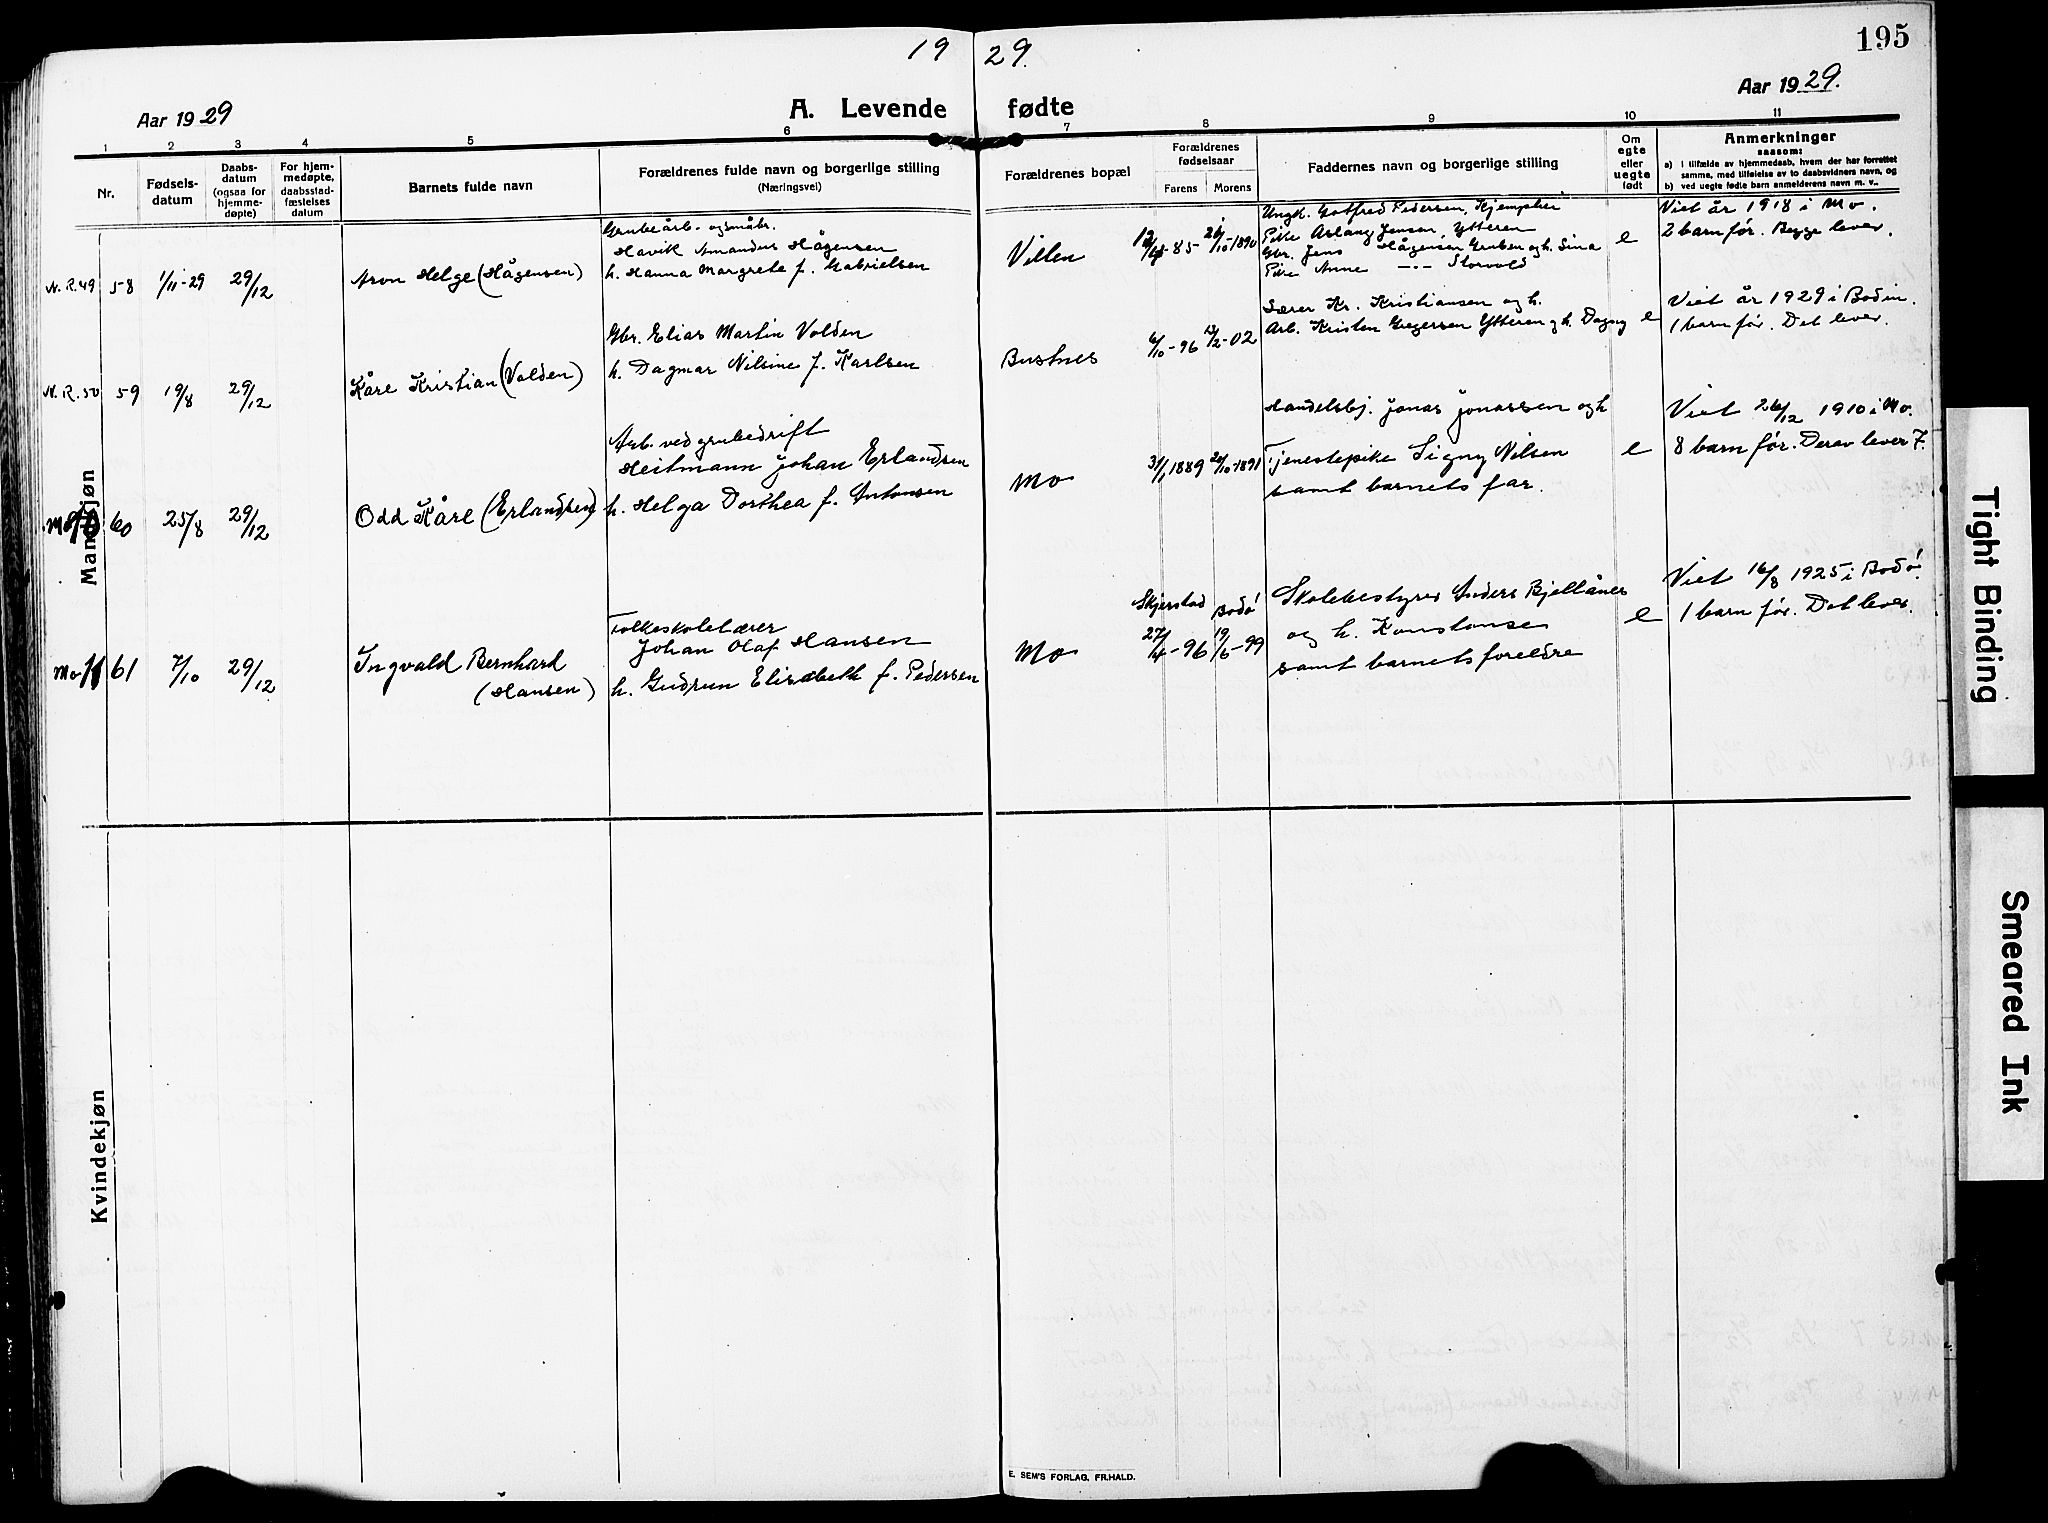 19 29.
195
Aar 1929
A. Levende fødte
Aar 1929.
1 2 3 4 5 6 7 8 9 10 11
Nr.
Fødsels-
datum
Daabs-
datum
(ogsaa for
hjemme-
døpte)
For hjem-
medøpte,
daabsstad-
fæstelses
datum
Barnets fulde navn
Forældrenes fulde navn og borgerlige stilling
(Næringsvei)
Forældrenes bopæl
Forældrenes
fødselsaar
Farens Morens
Faddernes navn og borgerlige stilling
Om
egte
eller
uegte
født
Anmerkninger
saasom:
a) i tilfælde av hjemmedaab, hvem der har forrettet
samme, med tilføielse av to daabsvidners navn, og
b) ved uegte fødte barn anmelderens navn m. v..
Mandkjøn
N.R. 49 58 1/11-29 29/12
Aron Helge (Hågensen)
Grubearb. og småbr.
Havik Amandus Hågensen
h. Hanna Margrete f. Gabrielsen
Villen
26/10-1890
Ungk. Gotfred Pedersen, Kjemplier
Pike Aslaug Jensen, Ytteren
Gbr. Jens Hågensen Gruben og h. Sina
Pike Anne -"- Storvold
e
Viet år 1918 i Mo.
2 barn før. Begge lever.
N.R. 50 59 19/8 29/12
Kåre Kristian (Volden)
Gbr. Elias Martin Volden
h. Dagmar Nilsine f. Karlsen
Bustnes
6/10-96 13/2-02
Lærer Kr. Kristiansen og h.
Arb. Kristen Gregersen Ytteren og h. Dagny
e
Viet år 1929 i Bodin.
1 barn før. Det lever.
60 25/8 29/12
Odd Kåre (Erlandsen)
Arb. ved grubedrift
Heitmann Johan Erlandsen
h. Helga Dorthea f. Antonsen
Mo
31/1 1889 20/10-1891
Handelsbj. Jonas Jonassen og h
Tjenestepike Signy Nilsen
samt barnets far.
e
Viet 26/12 1910 i Mo.
8 barn før. Derav lever 7.
Mo 61 7/10 29/12
Ingvald Bernhard
(Hansen)
Folkeskolelærer
Johan Olaf Hansen
h. Gudrun Elisabeth f. Pedersen
Mo
Skjerstad Bodø
27/4-96 19/6-99
Skolebestyrer Anders Bjellånes
og h. Konstanse
samt barnets foreldre
e
Viet 16/8 1925 i Bodø.
1 barn før. Det lever.
Kvindekjøn
E. SEM'S FORLAG, FR.HALD.
Tight Binding
Smeared Ink